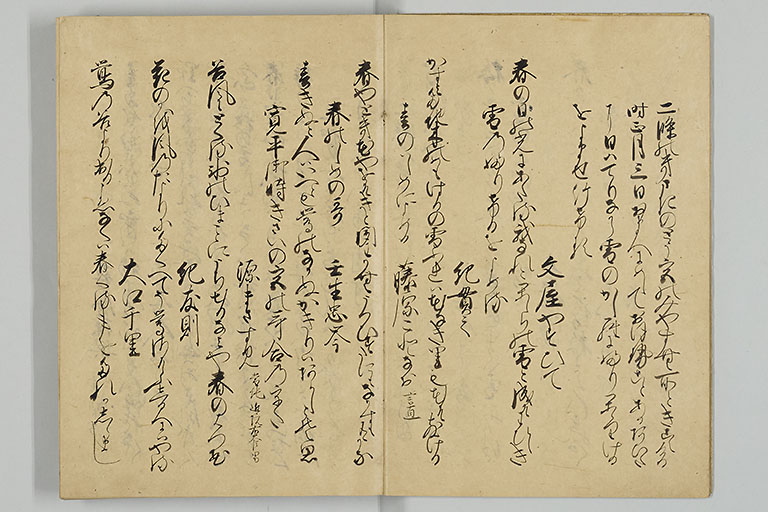 二條のきさきのとう宮のみやす所ときこえける
時正月三日おまへにめしておほせことあるあひた
に日はてりなから雪のかしらにふりかゝりける
をよませ給ける
文屋やすひて
春の日のひかりにあたる我なれとかしらの雪となるそわひしき
雪のふりけるをよめる
紀貫之
かすみたちこのめもはるの雪ふれは花なきさとも花そちりける
春のはしめによめる
藤原ことなお 言直
春やとき花やをそきときゝわかむうくひすたにもなかすもあるかな
春のはしめの哥
壬生忠岑
春きぬと人はいへとも鶯のなかぬかきりはあらしとそ思
寛平御時きさいの宮の哥合のうた
源まさすみ
谷風にとくる氷のひまことにうちいつるなみや春のはつ花
紀友則
花のかを風のたよりにたくへてそ鶯さそふしるへにはやる
大江千里
鶯の谷よりいつるこゑなくは春くることをたれかしらまし